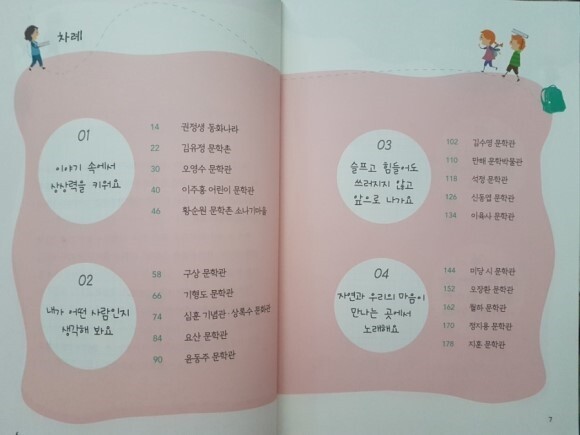 차례
01
이야기 속에서
상상력을 키워요
14 권정생 동화나라
22 김유정 문학촌
30 오영수 문학관
40 이주홍 어린이 문학관
46 황순원 문학촌 소나기마을
02
내가 어떤 사람인지
생각해 봐요
58 구상 문학관
66 기형도 문학관
74 심훈 기념관·상록수 문화관
84 요산 문학관
90 윤동주 문학관
03
슬프고 힘들어도
쓰러지지 않고
앞으로 나가요
102 김수영 문학관
110 만해 문학박물관
118 석정 문학관
126 신동엽 문학관
134 이육사 문학관
04
자연과 우리의 마음이
만나는 곳에서
노래해요
144 미당 시 문학관
152 오장환 문학관
162 월하 문학관
170 정지용 문학관
178 지훈 문학관
7